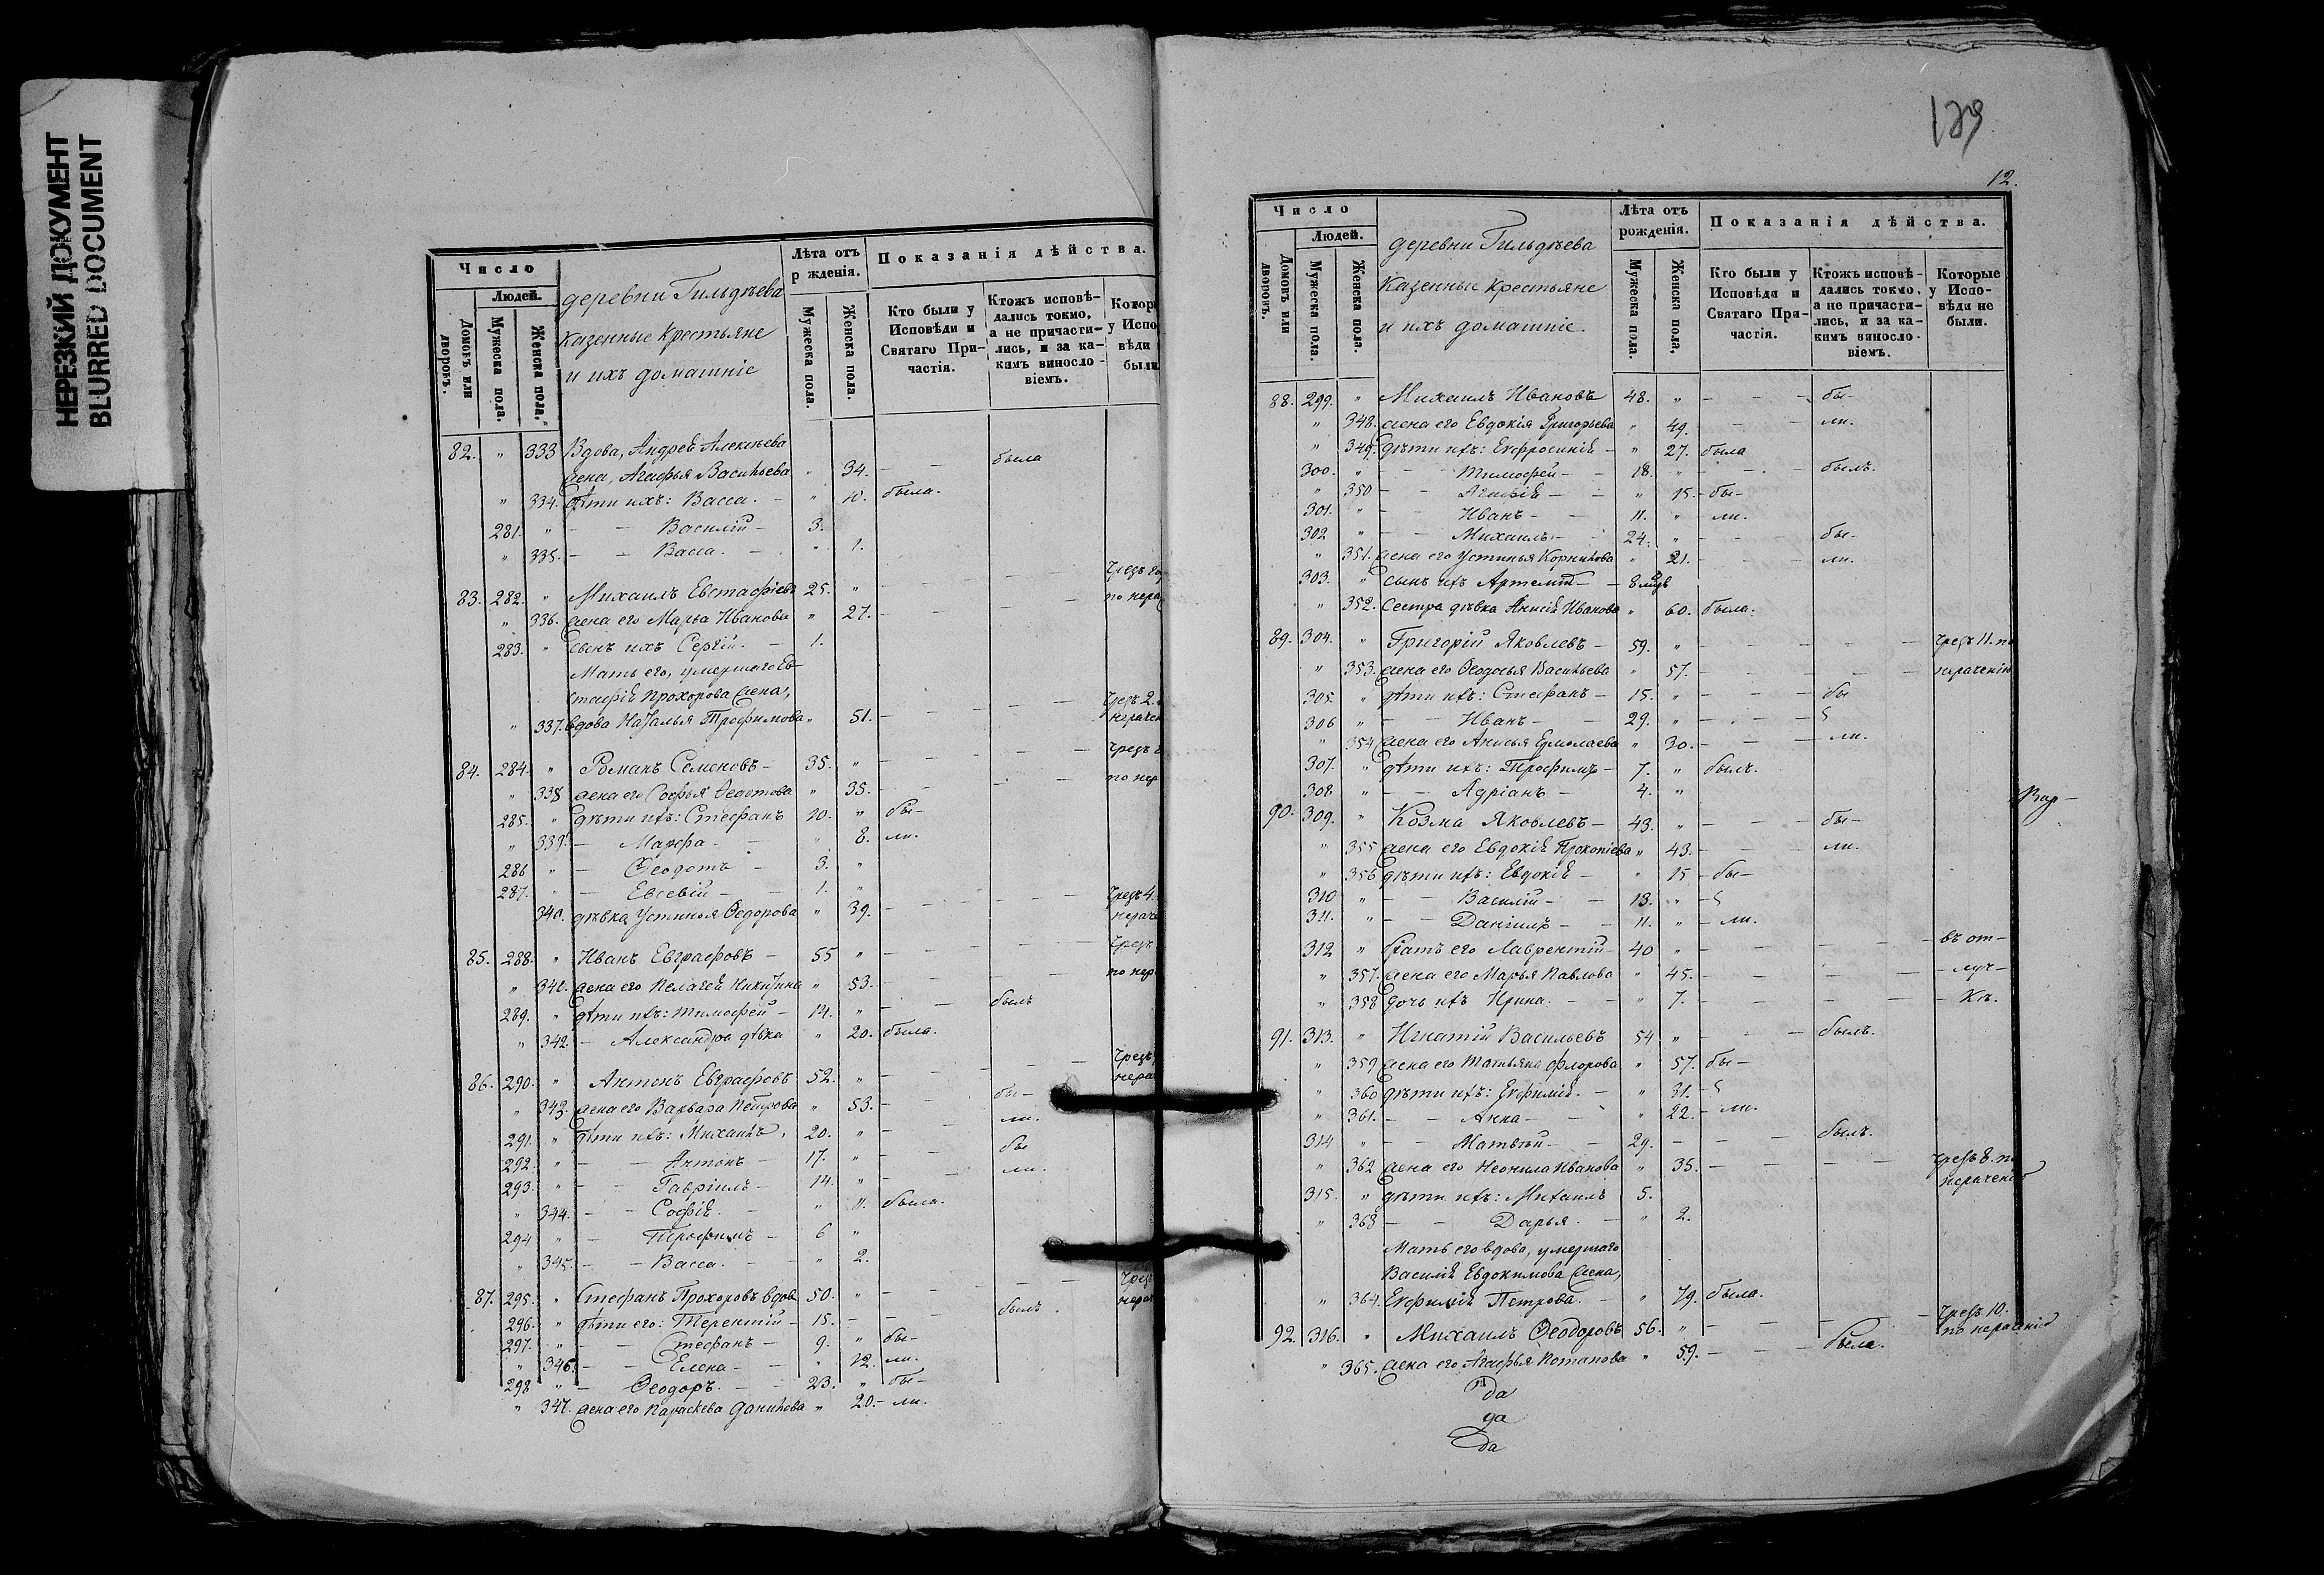 НЕРЕЗКИЙ ДОКУМЕНТ
BLURRED DOCUMENT
Число
Людей.
Домовъ или дворовъ.
Мужеска пола.
Женска пола.
деревни Гильдѣева
казенные крестьяне
и ихъ домашніе
Лѣта отъ
р жденія.
Мужеска пола.
Женска пола.
Показанія дѣйства.
Кто были у
Исповѣди и
Святаго При-
частія.
Ктожъ исповѣ-
дались токмо,
а не причасти-
лись, и за ка-
кимъ винosло-
віемъ.
Котор
у Испо
вѣди
были
82. " 333 Вдова, Андрея Алексѣева
жена, Агафья Васильева " 34. - - была
" 334. Дѣти ихъ: Васса. - " 10. была.
281. " - - Василій - 3.
" 335. - - Васса. - " 1.
83. 282. " Михаилъ Евстафіевъ 25. " - - - Чрезъ
" 336. жена его Марья Иванова " 27. - - - по нера
283. " сынъ ихъ Сергій. - 1.
Мать его, умершаго Ев-
стафія Прохорова жена,
" 337. вдова Наталья Трофимова " 51. - - - Чрезъ 2.
нерачен
84. 284. " Романъ Семеновъ - 35. " - - - Чрезъ
" 338 жена его Софья Федотова " 35. - - - по нер
285. " дѣти ихъ: Стефанъ 10. " бы-
" 339. - Марфа - " 8. ли.
286 " - Ѳеодотъ - 3. "
287. " - Евсевій - 1. "
340. дѣвка Устинья Ѳедорова " 39. - - - Чрезъ 4.
нераче
85. 288. " Иванъ Евграфовъ - 55 " - - - Чрезъ
" 341. жена его Пелагея Никитина " 53. - - - по нер
289. " дѣти ихъ: Тимофей - 14. " - - былъ
" 342. - Александра дѣвка " 20. была.
86. 290. " Антонъ Евграфовъ 52. " - - - Чрезъ
нера
" 343. жена его Варвара Петрова " 53. - - бы-
291. " дѣти ихъ: Михаилъ, 20. " - - ли.
292. " - - Антонъ - 17. " - - бы
293. " - - Гавріилъ - 14. " - - ли.
" 344. - - Софія. - " 11. была.
294 " - Трофимъ - 6 "
" 345. - - Васса. - " 2.
87. 295. " Стефанъ Прохоровъ вдов 50. " - - - Чрез
нера
296. " дѣти его: Терентій - 15. - - былъ.
297. " - - Стефанъ - 9. " бы-
" 346. - - Елена - " 12. ли.
298 " - Ѳеодоръ. - 23. " бы-
" 347. жена его Параскева Данилова " 20. - ли.
129
12.
Число
Людей.
Домовъ или дворовъ.
Мужеска пола.
Женска пола.
деревни Гильдѣева
казенные крестьяне
и ихъ домашніе.
Лѣта отъ
рожденія.
Мужеска пола.
Женска пола.
Показанія дѣйства.
Кто были у
Исповѣди и
Святаго При-
частія.
Ктожъ исповѣ-
дались токмо,
а не причасти-
лись, и за ка-
кимъ винosло-
віемъ.
Которые
у Испо-
вѣди не
были.
88. 299. " Михаилъ Ивановъ 48. " - - - бы-
" 348. жена его Евдокія Григорьева " 49. - - ли.
" 349. дѣти ихъ: Евфросинія - " 27. была
300. " - - Тимофей - 18. " - - былъ.
" 350 - - Агафія - - " 15. - бы-
301. " - - Иванъ - - 11. " ли.
302 " - - Михаилъ - 24. " - - бы-
" 351. жена его Устинья Корнилова " 21. - - ли.
303. " сынъ ихъ Артемій - - 8 мцъ
" 352. Сестра дѣвка Анисія Иванова " 60. была.
89. 304. " Григорій Яковлевъ - 59. " - - - - Чрезъ 11. по
" 353. жена его Ѳеодосья Васильева " 57. - - - - нераченію
305. " дѣти ихъ: Стефанъ - 15. " - - - бы
306 " - - Иванъ - - 29. " - - -
" 354 жена его Анисья Ермолаева " 30. - - - ли.
307. " дѣти ихъ: Трофимъ - 7. " былъ.
308 " - - Адріанъ - 4. "
Вар-
90. 309. " Козма Яковлевъ - 43. " - - - бы-
" 355 жена его Евдокія Прокопіева " 43. - - - ли.
" 356 дѣти ихъ: Евдокія - " 15 - бы-
310 " - - Василій - - 13. " -
311. " - - Даніилъ - - 11. " - ли.
312 " братъ его Лаврентій - 40 " - - - - въ от-
" 357. жена его Марья Павлова " 45. - - - - луч-
" 358 дочь ихъ Ирина. - - " 7. - - - - кѣ.
91. 313. " Игнатій Васильевъ 54 " - - - былъ.
" 359 жена его Татьяна Флорова " 57. бы-
" 360 дѣти ихъ: Евфимія. - " 31. -
" 361. - - Анна - - " 22. - ли.
314 " - - Матвѣй - - 29. - - - былъ.
" 362 жена его Неонила Иванова " 35. - - - - Чрезъ 8. по
нераченію
315. " дѣти ихъ: Михаилъ 5.
" 363 - - Дарья. - " 2.
Мать его вдова, умершаго
Василія Евдокимова жена,
" 364. Евфимія Петрова. - " 79. была.
92. 316. " Михаилъ Ѳеодоровъ 56. " - - - - Чрезъ 10.
по нераченію
" 365. жена его Агафья Потапова " 59. - - - была.
да
да
да